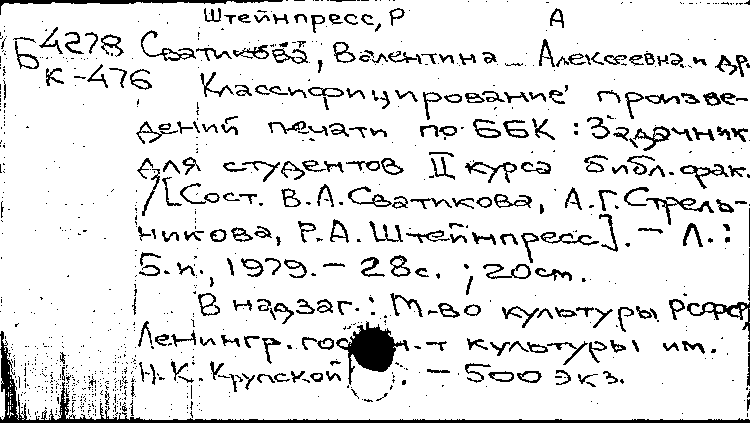 Штейнпресс, Р А
Б4278 Сватикова, Валентина Алексеевна и др.
К-476 Классифицирование произве-
дений печати по ББК : Задачник
для студентов II курса библ. фак.
/[Сост. В.А.Сватикова, А.Г.Стрель-
никова, Р.А.Штейнпресс]. - Л.:
Б.и., 1979. - 28с. ; 20cm.
В надзаг.: М-во культуры РСФСР,
Ленингр. гос. н-т культуры им.
Н.К.Крупской. - 500 экз.